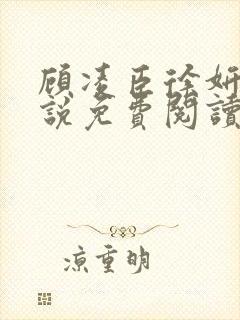 顾凌臣徐妍
說免費閱讀
凉重明